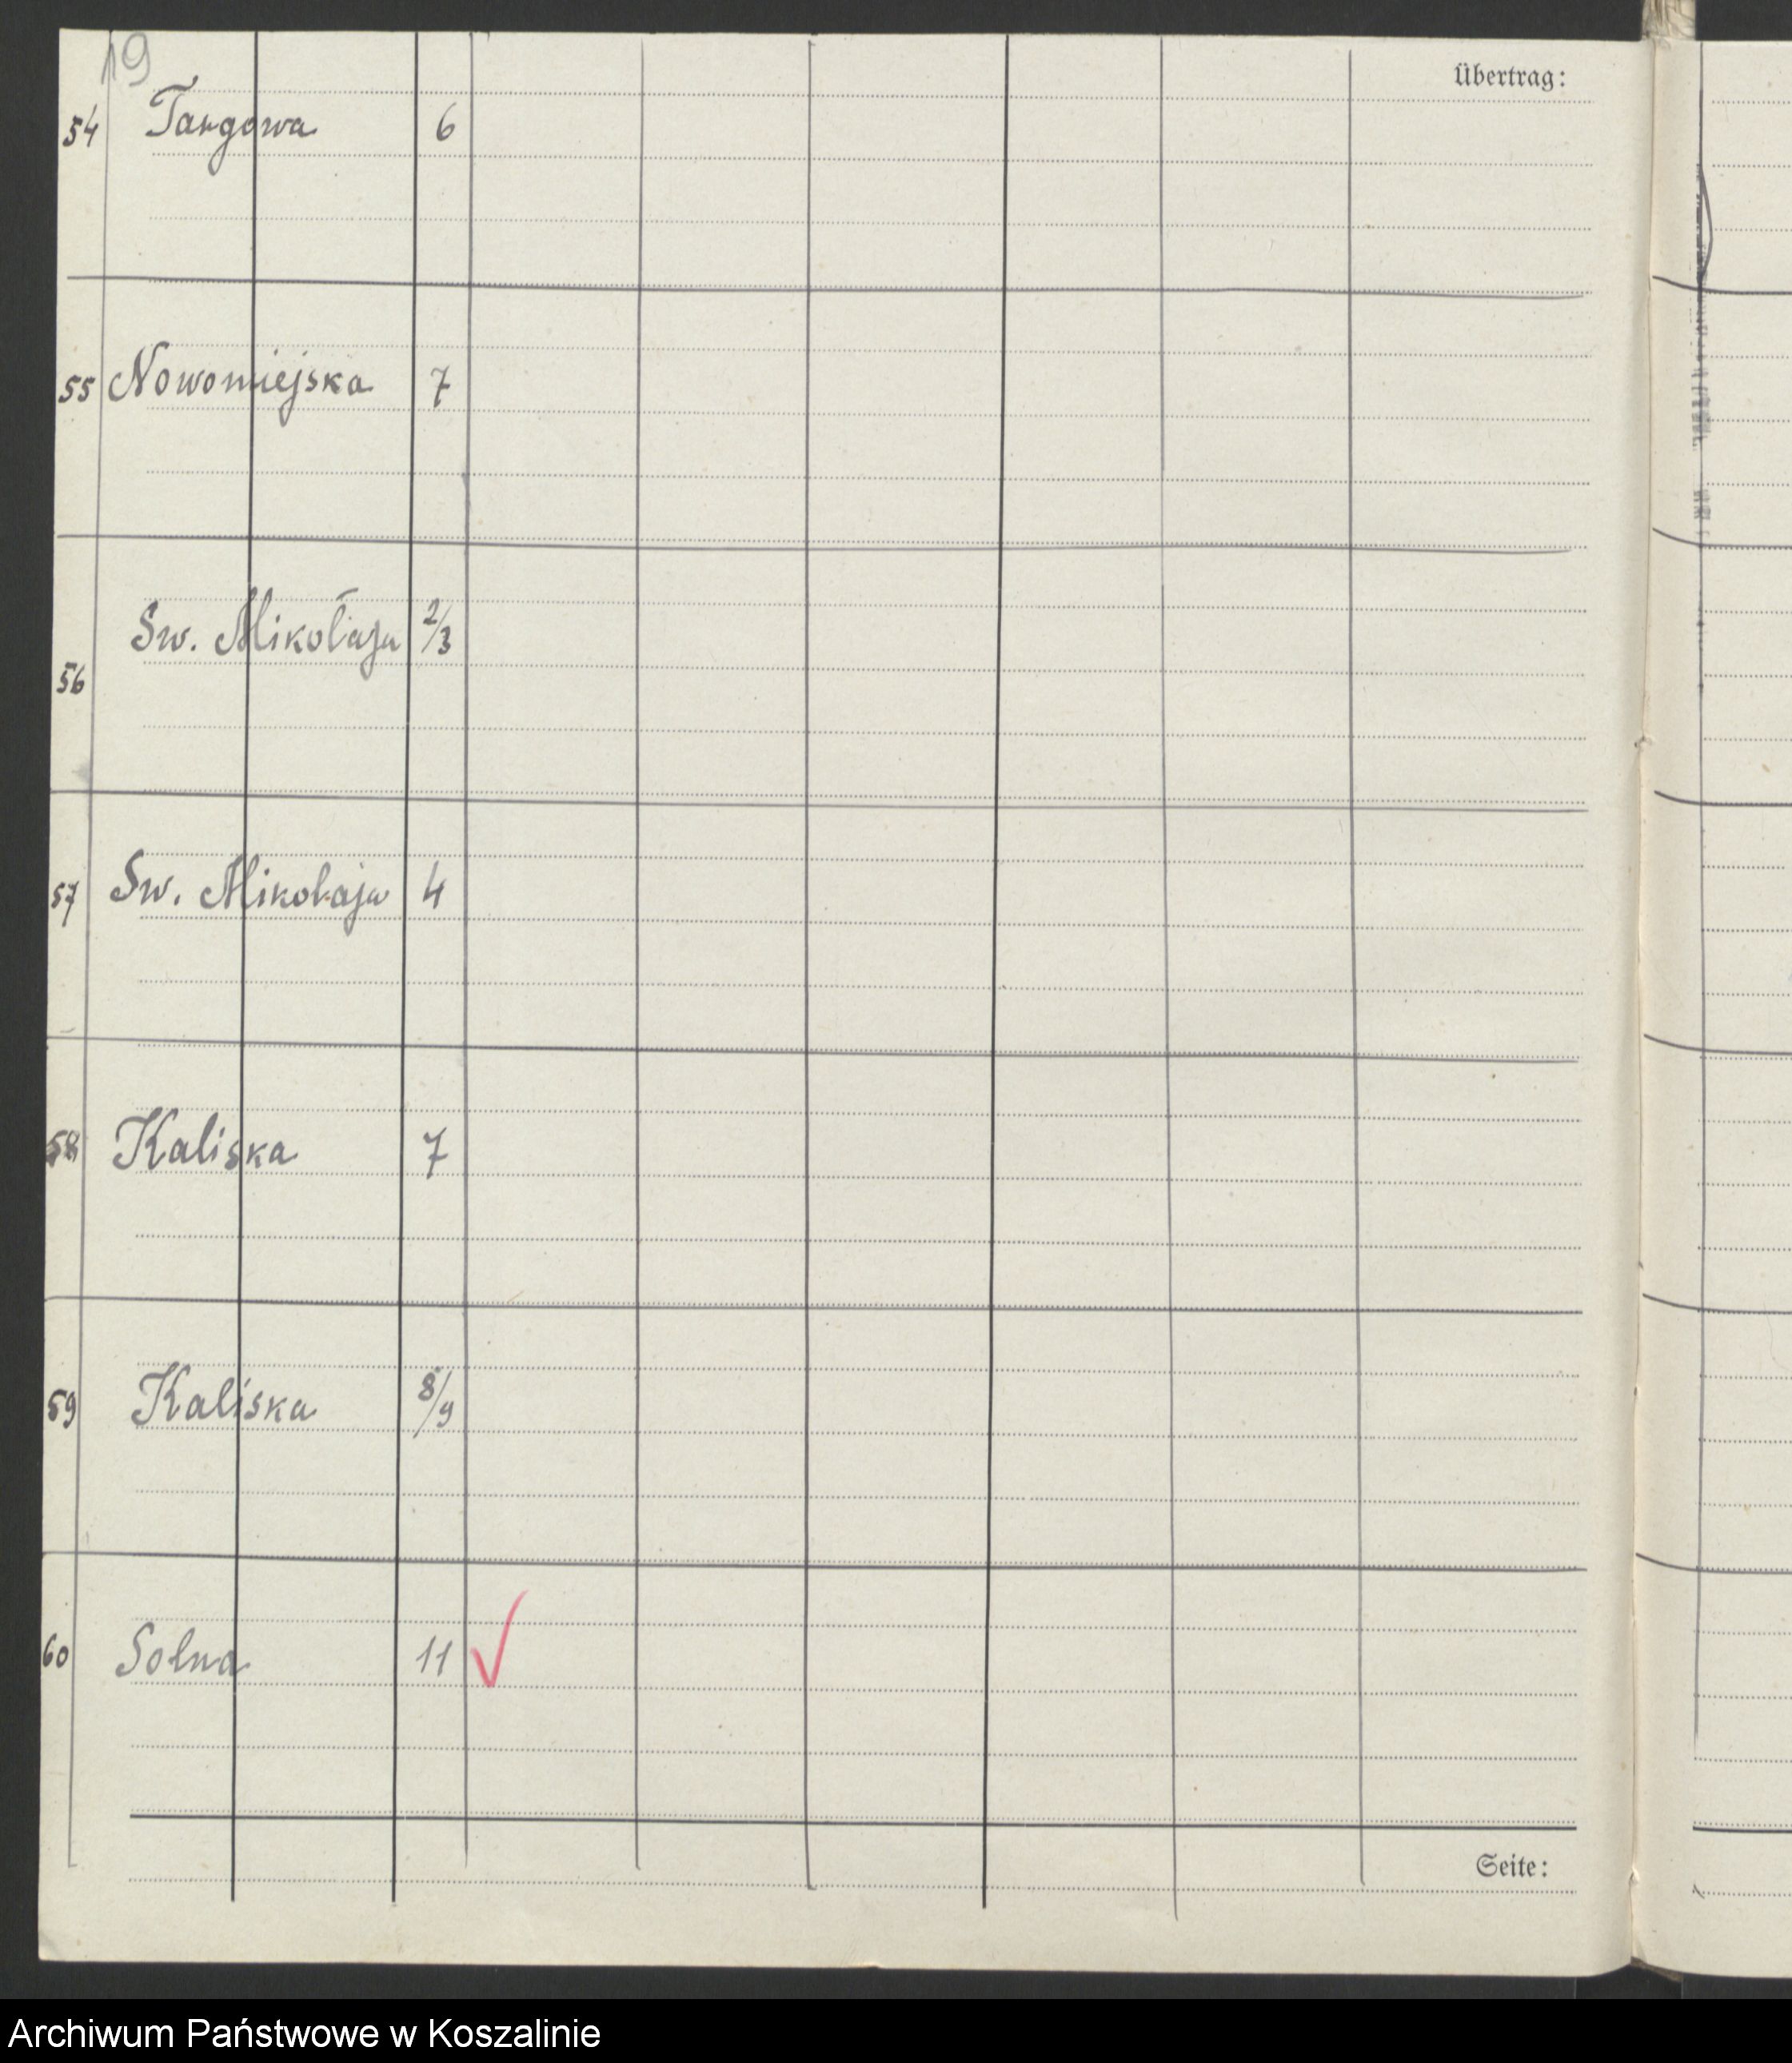 19
Übertrag:
54 Targowa 6
55 Nowomiejska 7
56 Sw. Mikołaja 2/3
57 Sw. Mikołaja 4
58 Kaliska 7
59 Kaliska 8/9
60 Solna 11 ✓
Seite:
Archiwum Państwowe w Koszalinie